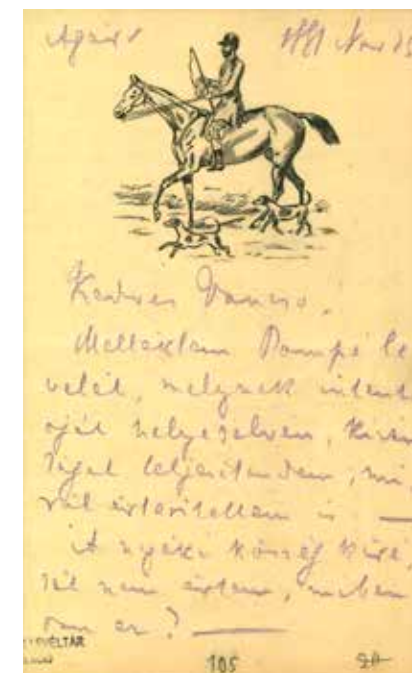 1881 Nov
Kedves
Mellékelem Pompé le
velét, melynek intent
ióját helyeselvén, kíván
ságát teljesítendem, mi
ről értesítettem is —
A nyéki község kéré
sét nem értem, miben
van ez? —
LEVÉLTÁR
105